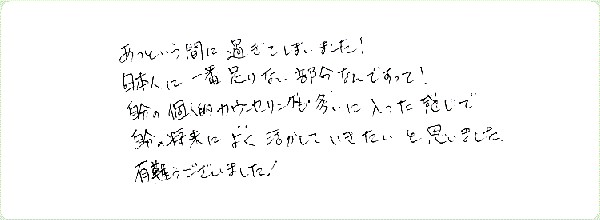 あっという間に過ぎてしまいました!
日本人に一番足りない部分なんですって!
自分の個人的カウンセリングも多いに入った感じで
自分の将来によく活かしていきたいと思いました
有難うございました!